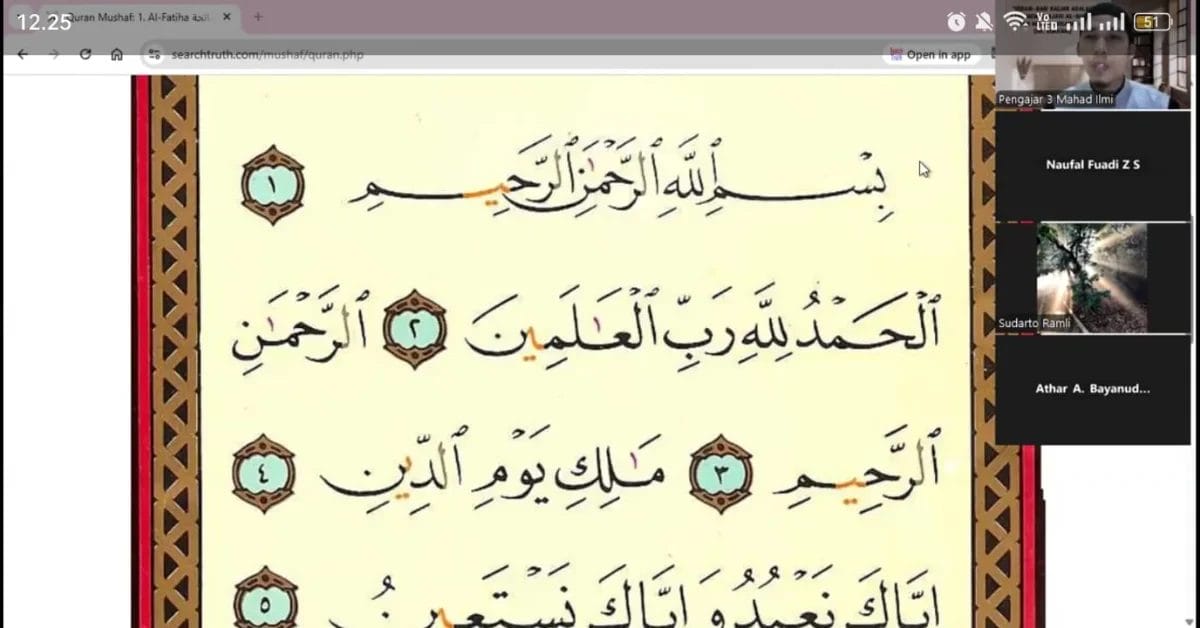 12.25
51
Quran Mushaf: 1. Al-Fatiha
searchtruth.com/mushaf/quran.php
Open in app
Pengajar 3 Mahad Ilmi
Naufal Fuadi Z S
Sudarto Ramli
Athar A. Bayanud...
بِسْمِ ٱللَّهِ ٱلرَّحْمَٰنِ ٱلرَّحِيمِ ١
ٱلْحَمْدُ لِلَّهِ رَبِّ ٱلْعَٰلَمِينَ ٢ ٱلرَّحْمَٰنِ
ٱلرَّحِيمِ ٣ مَٰلِكِ يَوْمِ ٱلدِّينِ ٤
إِيَّاكَ نَعْبُدُ وَإِيَّاكَ نَسْتَعِينُ ٥